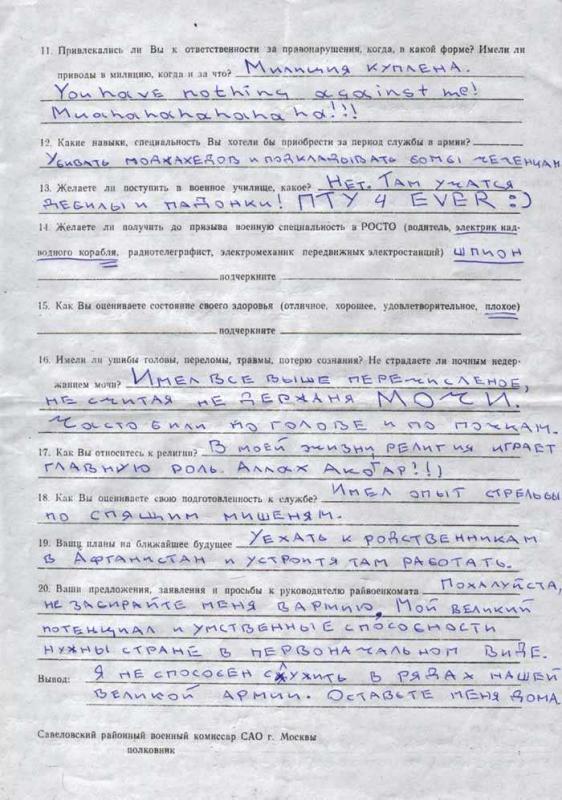 11. Привлекались ли Вы к ответственности за правонарушения, когда, в какой форме? Имели ли
приводы в милицию, когда и за что? Милиция куплена.
You have nothing against me!
Muahahahahahaha!!!
12. Какие навыки, специальность Вы хотели бы приобрести за период службы в армии?
Убивать моджахедов и подкладывать бомбы чеченцам
13. Желаете ли поступить в военное училище, какое? Нет. Там учатся
дебилы и падонки! ПТУ 4 EVER :)
14. Желаете ли получить до призыва военную специальность в РОСТО (водитель, электрик над-
водного корабля, радиотелеграфист, электромеханик передвижных электростанций) шпион
подчеркните
15. Как Вы оцениваете состояние своего здоровья (отличное, хорошее, удовлетворительное, плохое)
подчеркните
16. Имели ли ушибы головы, переломы, травмы, потерю сознания? Не страдаете ли ночным недер-
жанием мочи? Имел все выше перечисленое,
не считая не держаня МОЧИ.
Часто били по голове и по почкам.
17. Как Вы относитесь к религии? В моей жизни, религия играет
главную роль. Аллах Акбар!!)
18. Как Вы оцениваете свою подготовленность к службе? Имел опыт стрельбы
по спящим мишеням.
19. Ваши планы на ближайшее будущее Уехать к родственникам
в Афганистан и устроитя там работать.
20. Ваши предложения, заявления и просьбы к руководителю райвоенкомата Похалуйста,
не забирайте меня в армию, Мой великий
потенциал и умственные способности
нужны стране в первоначальном виде.
Вывод: Я не способен служить в рядах нашей
великой армии. Оставьте меня дома
Савеловский районный военный комиссар САО г. Москвы
полковник